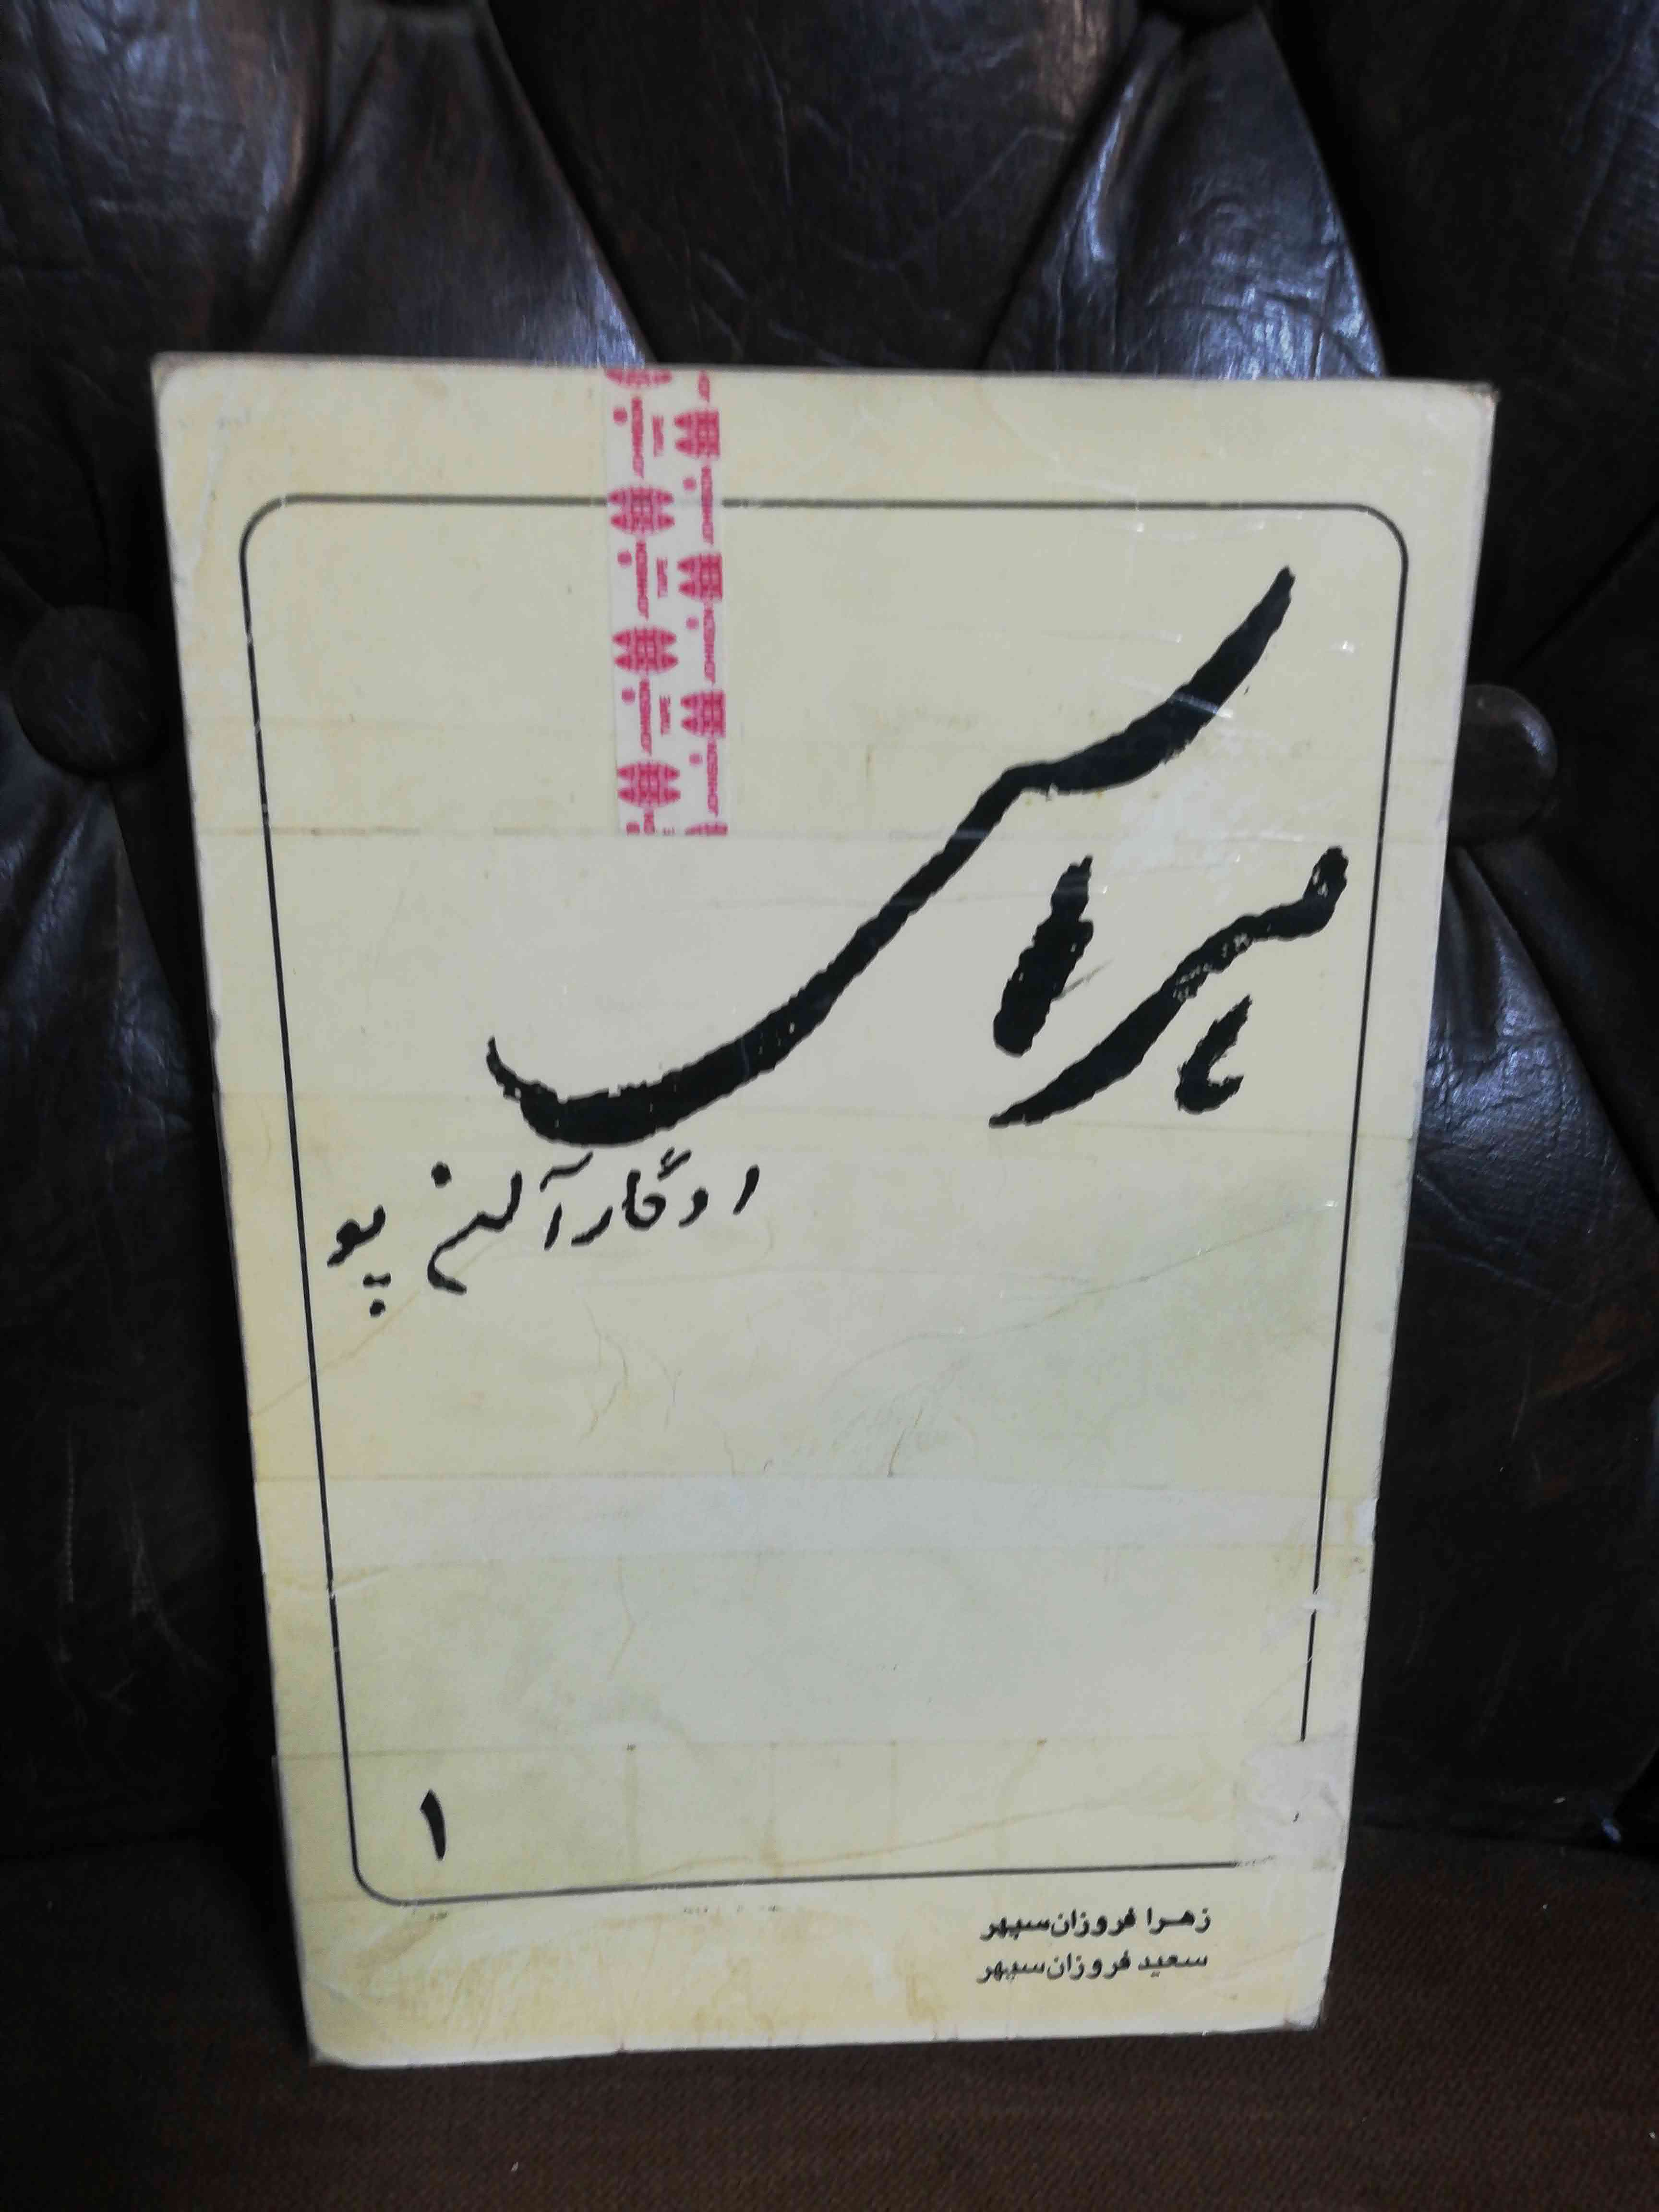 هراس
ادگار آلن پو
۱
زهرا فروزان‌سپهر
سعید فروزان‌سپهر